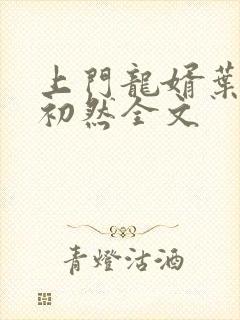 上門龍婿葉
初然全文
青燈沽酒